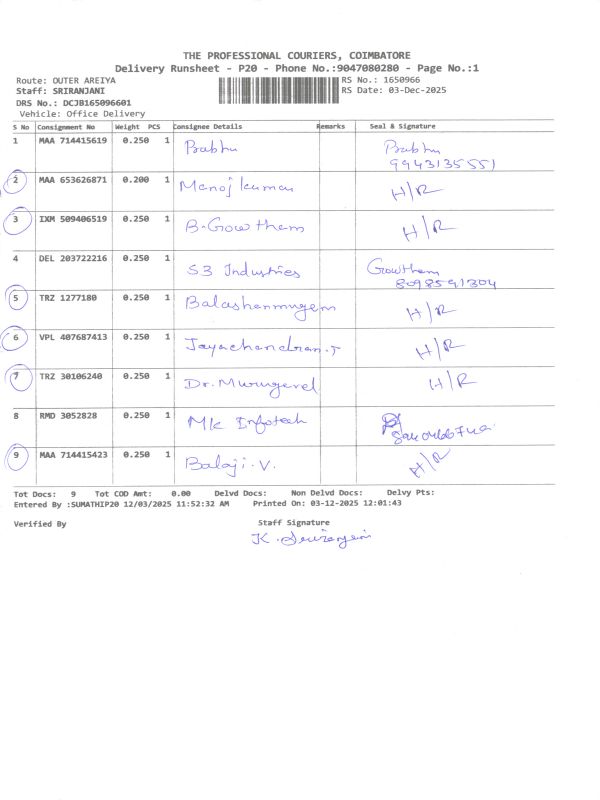 THE PROFESSIONAL COURIERS, COIMBATORE
Delivery Runsheet - P20 - Phone No.:9047080280 - Page No.:1
Route: OUTER AREIYA RS No.: 1650966
Staff: SRIRANJANI RS Date: 03-Dec-2025
DRS No.: DCJB165096601
Vehicle: Office Delivery
S No Consignment No Weight PCS Consignee Details Remarks Seal & Signature
1 MAA 714415619 0.250 1 Prabhu Prabhu
9943135551
2 MAA 653626871 0.200 1 Manoj kumar H/R
3 IXM 509406519 0.250 1 B.Gowtham H/R
4 DEL 203722216 0.250 1 S3 Industries Gowtham
8098591304
5 TRZ 1277180 0.250 1 Balashanmugam H/R
6 VPL 407687413 0.250 1 Jayachandran.T H/R
7 TRZ 30106240 0.250 1 Dr.Murugavel H/R
8 RMD 3052828 0.250 1 MK Infotech
9 MAA 714415423 0.250 1 Balaji.V. H/R
Tot Docs: 9 Tot COD Amt: 0.00 Delvd Docs: Non Delvd Docs: Delvy Pts:
Entered By :SUMATHIP20 12/03/2025 11:52:32 AM Printed On: 03-12-2025 12:01:43
Verified By Staff Signature
K.